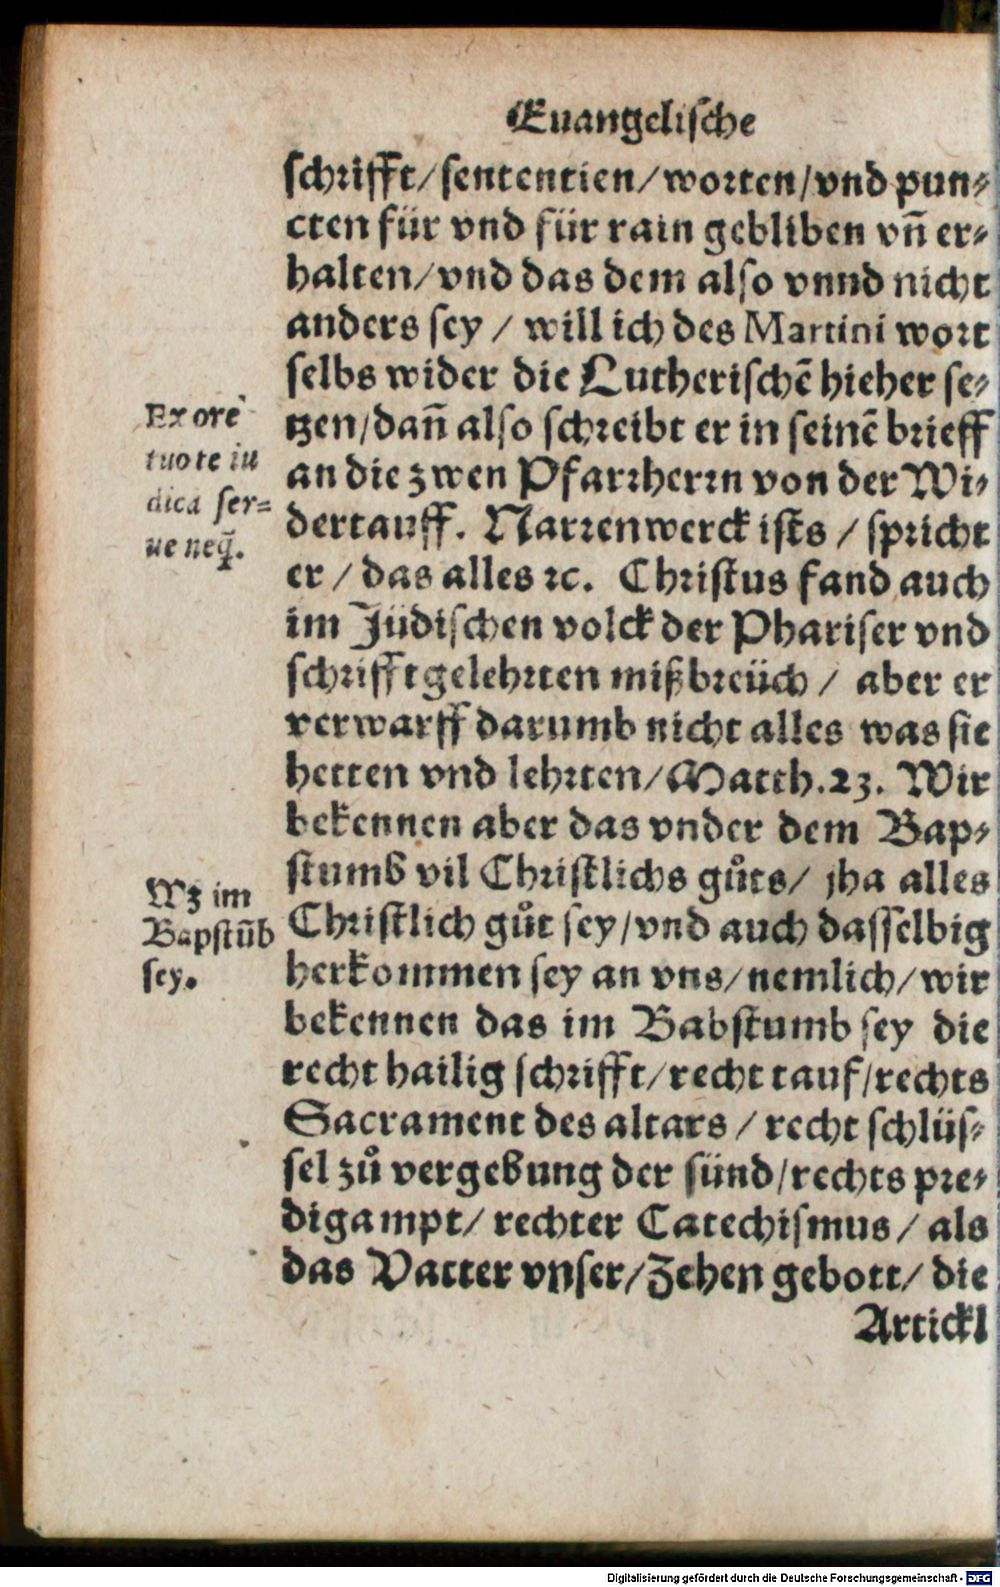 Euangelische
schrifft/sententien/worten/vnd pun⸗
cten für vnd für rain gebliben vñ er⸗
halten/vnd das dem also vnnd nicht
anders sey / will ich des Martini wort
selbs wider die Lutherischē hieher se⸗
tzen/dañ also schreibt er in seinē brieff
an die zwen Pfarrherrn von der Wi⸗
dertauff. Narrenwerck ists / spricht
er / das alles ꝛc. Christus fand auch
im Jüdischen volck der Phariser vnd
schrifftgelehrten mißbreüch / aber er
verwarff darumb nicht alles was sie
hetten vnd lehrten/Matth.23. Wir
bekennen aber das vnder dem Bap⸗
stumb vil Christlichs gůts/ jha alles
Christlich gůt sey/vnd auch dasselbig
herkommen sey an vns/nemlich/wir
bekennen das im Babstumb sey die
recht hailig schrifft/recht tauf/rechts
Sacrament des altars / recht schlüs⸗
sel zů vergebung der sünd/rechts pre⸗
digampt/ rechter Catechismus/ als
das Vatter vnser/Zehen gebott/ die
Artickl
Ex ore
tuo te iu
dica ser=
ue neq̃.
Wz im
Bapstũb
sey.
Digitalisierung gefördert durch die Deutsche Forschungsgemeinschaft - DFG